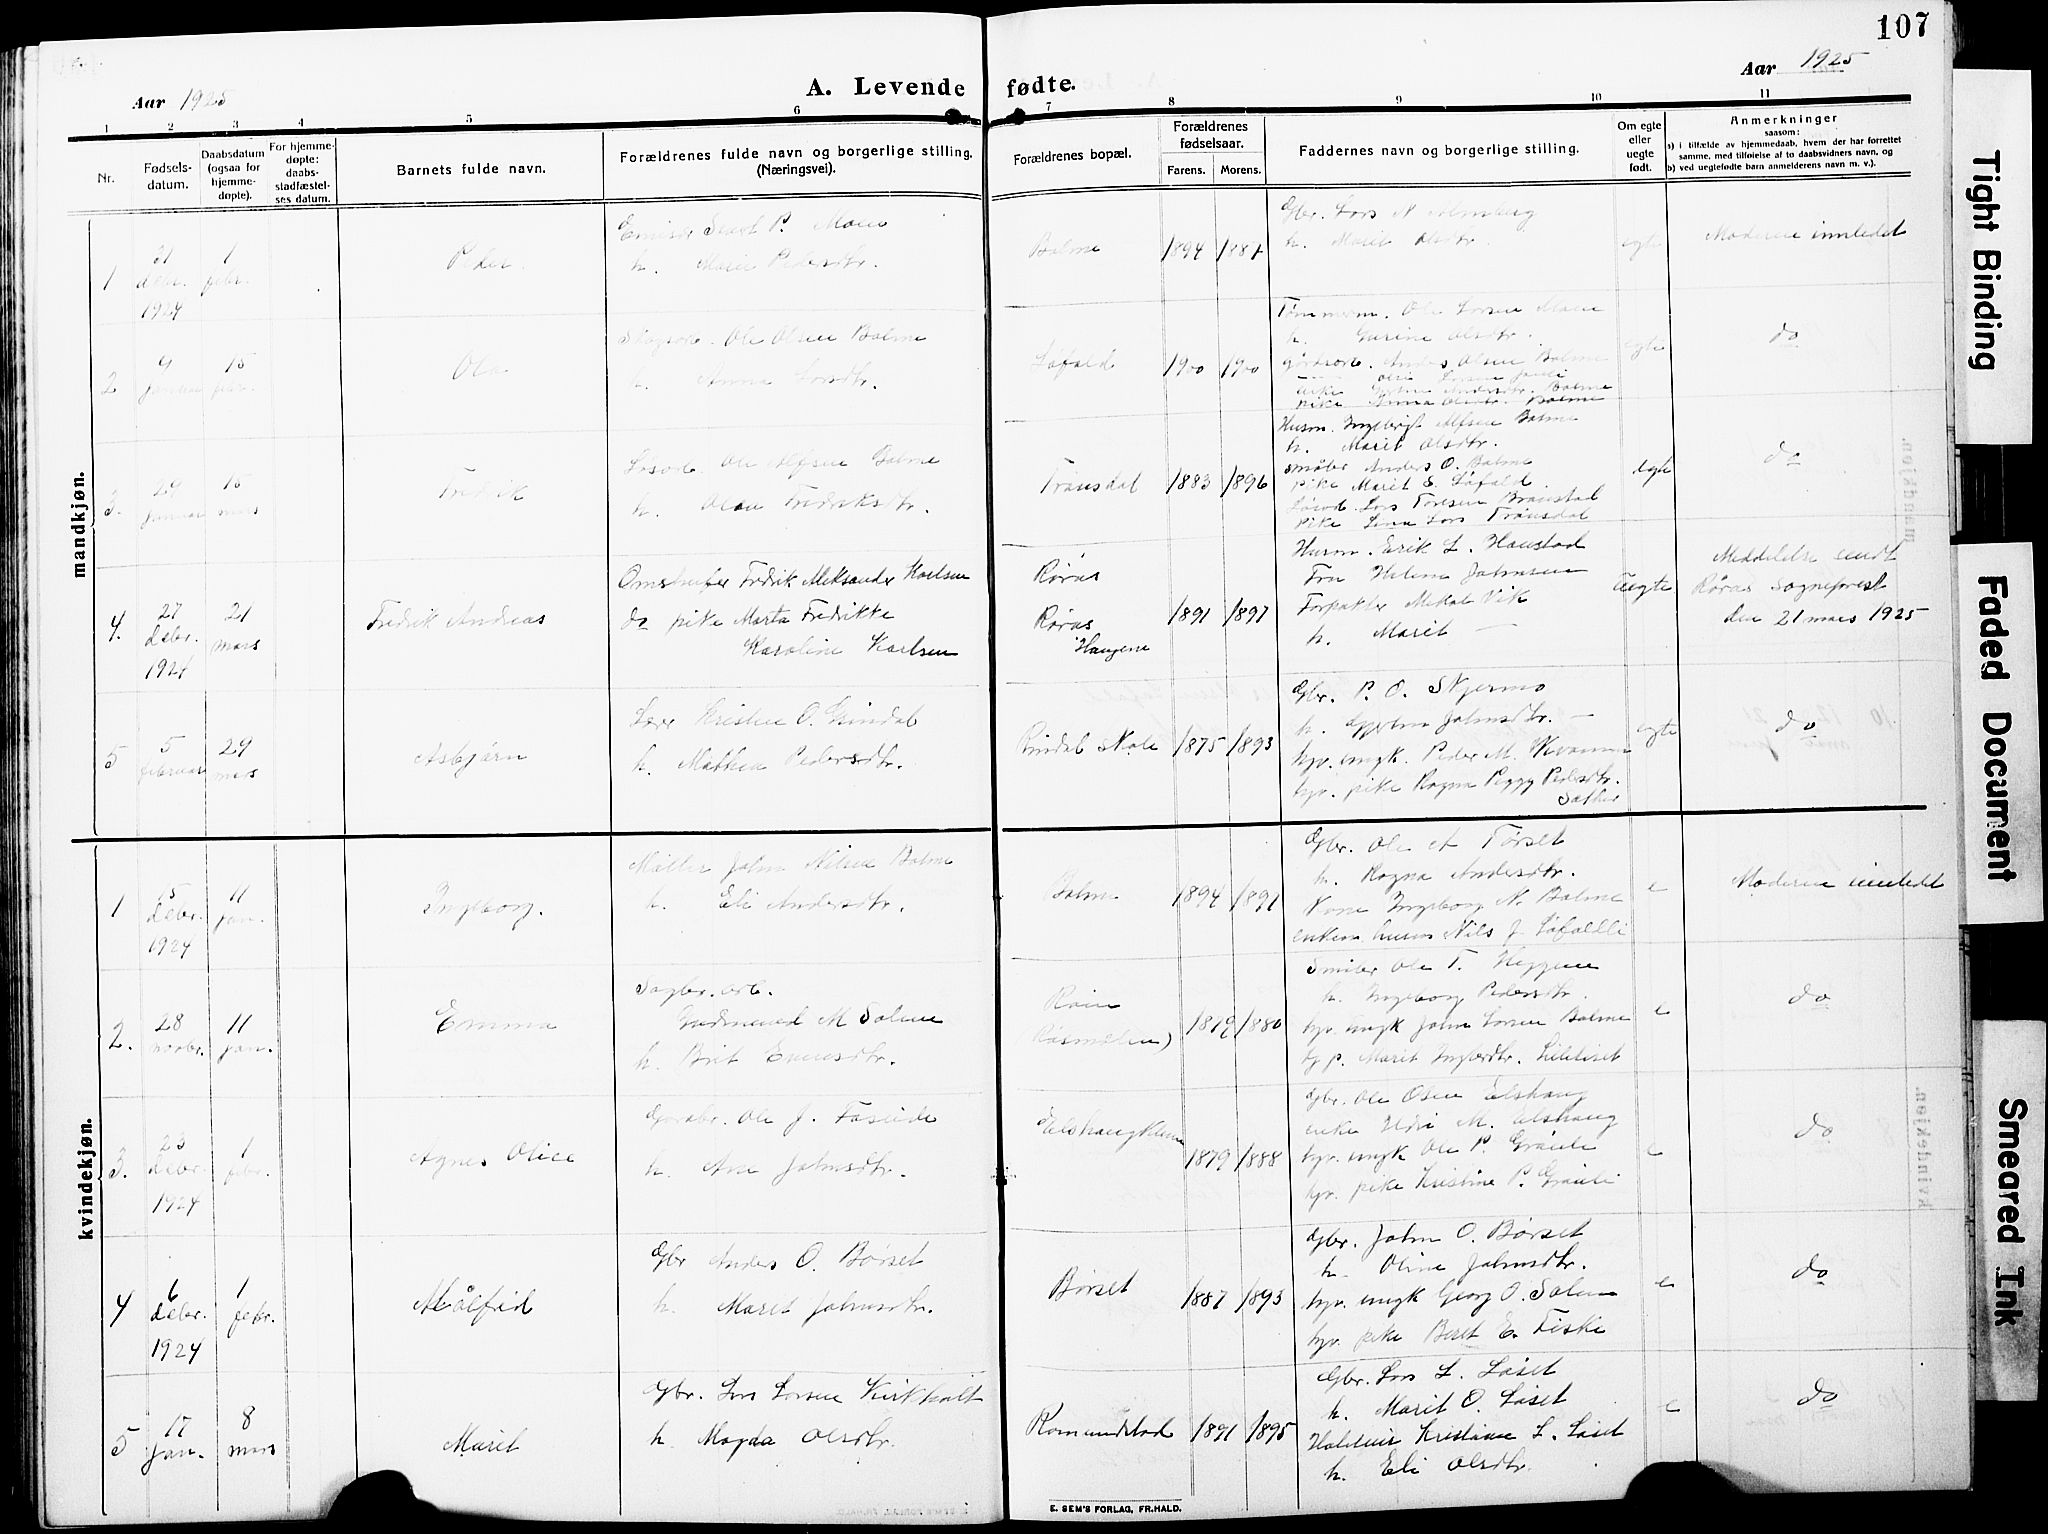 107
Aar 1925
A. Levende fødte.
Aar 1925
1 2 3 4 5 6 7 8 9 10 11
Nr.
Fødsels-
datum.
Daabsdatum
(ogsaa for
hjemme-
døpte).
For hjemme-
døpte:
daabs-
stadfæstel-
ses datum.
Barnets fulde navn.
Forældrenes fulde navn og borgerlige stilling.
(Næringsvei).
Forældrenes bopæl.
Forældrenes
fødselsaar.
Farens. Morens.
Faddernes navn og borgerlige stilling.
Om egte
eller
uegte
født.
Anmerkninger
saasom:
a) i tilfælde av hjemmedaab, hvem der har forrettet
samme, med tilføielse af to daabsvidners navn, og
b) ved uegtefødte barn anmelderens navn m. v.).
mandkjøn.
1
21
debr.
1924
1
febr.
Peder
P. Moen
h. Marie Pedersdtr.
Bolme
1894 1887
Gbr. Lars N.
h. Marit Olsdtr.
egte
Moderen innledet
2
9
januar
15
febr.
Ola
Skogsarb. Ole Olsen Bolme
h. Anna Larsdtr.
Løfald
1900 1900
Tømmerm. Ole Larsen Moen
h. Gurine Olsdtr.
Gårdsarb. Anders Olsen Bolme
pike Anna Olsdtr. Bolme
egte
do
3.
29
januar
15
mars
Fredrik
Ole Alfsen Bolme
h. Olau Fredriksdtr.
Trønsdal
1883 1896
Husm. Ingebrigt Alfsen Bolme
h. Marit Olsdtr.
Småbr Anders O. Bolme
pike Marit E. Løfald.
Lars Toresen Brønstad
Pike Lina Lars Trønsdal
egte
do
4.
27
debr.
1924
21
mars
Fredrik Andreas
Fredrik Aleksander Karlsen
do pike Marta Fredrikke
Karoline Karlsen
Røros
Røros
Haugene
1891 1897
Husm. Erik L. Haustad
Fru Helene Johnsen
Forpakter Mikal Vik
h. Marit —
Uegte
Meddelelse sendt
Røros sogneprest
den 21 mars 1925
5
5
februar
29
mars
Asbjørn
Lærer Kristen O. Grindal
h. Mathea Pedersdtr.
Rindal skole
1875 1893
Gbr. P. O. Skjermo
h. Gjertru Johnsdtr. —
hjv. ungk. Peder M. Kvamme
hjv. pike Ragna Peggy Pedersdtr.
Sæther
egte
do
kvindekjøn.
1
15
debr.
1924
11
jan.
Ingeborg.
Møller John Nilsen Bolme
h. Eli Andersdtr.
Bolme
1894 1891
Gbr. Ole A Tørset
h. Ragna Andersdtr.
Kone Ingeborg N. Bolme
enkem. husm Nils J. Løfaldli
e
Moderen innledet
2.
28
novbr.
11
jan.
Emma
Sagbr. arb.
M Solem
h. Brit Einesdtr.
Røen
(Røsmælen)
1879 1880
Småbr Ole T. Heggem
h. Ingeborg Pedersdtr.
hjv. ungk John Larsen Bolme
hj p. Marit Ingbrdtr. Lilleliset
e
do
3.
23
debr.
1924
1
febr.
Agnes Olise
Gårdbr. Ole J. Fosseide
h. Ane Johnsdtr.
Elshaugklev
1879 1888
Gbr. Ole Olsen Elshaug
enke Ildri M. Elshaug
hjv. ungk Ole P. Gråsli
hjv. pike Kristine P. Gråsli
e
do
4
6
debr.
1924
1
febr.
Målfrid
Gbr Anders O. Børset
h. Marit Johnsdtr.
Børset
1887 1893
Gbr. John O. Børset
h. Oline Johnsdtr.
hjv. ungk Georg O. Solem
hjv. pike Beret E. Fiske
e
do
5
17
jan.
8
mars
Marit
Gbr. Lars Larsen Kirkholt
h. Magda Olsdtr.
Romundstad
1891 1895
Gbr. Lars L. Løset
h. Marit O. Løset
Kristian L. Løset
h. Eli Olsdtr.
e
do
E. SEM'S FORLAG, FR.HALD.
Tight Binding
Faded Document
Smeared Ink